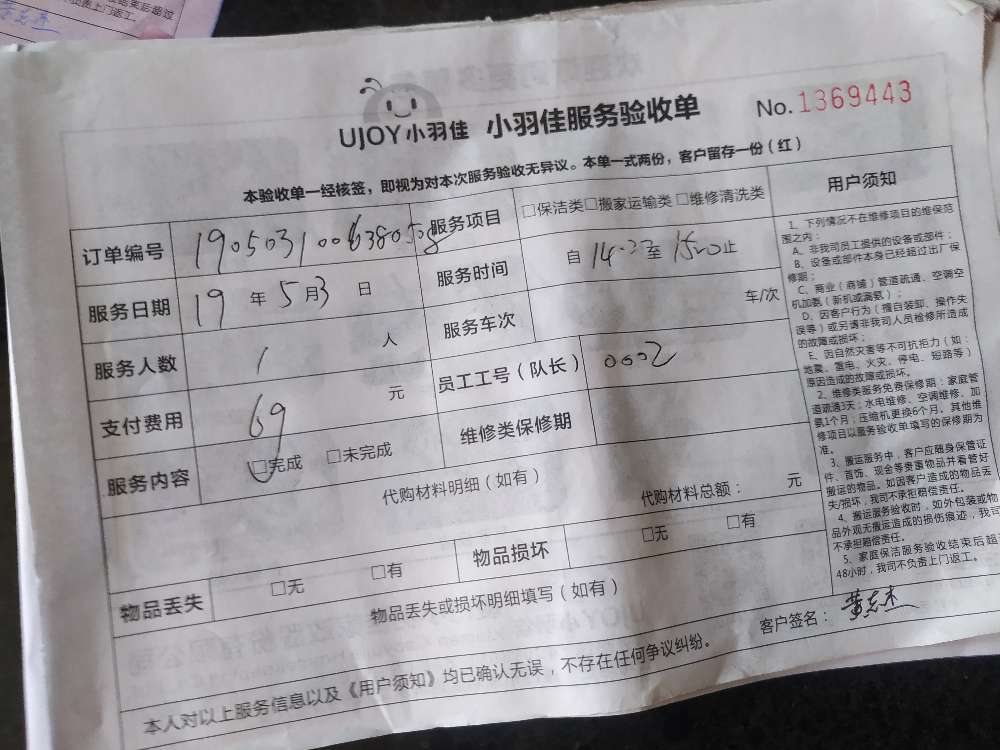 上门返工。
UJOY 小羽佳 小羽佳服务验收单 No. 1369443
本验收单一经核签，即视为对本次服务验收无异议。本单一式两份，客户留存一份（红）
订单编号 服务项目 □保洁类□搬家运输类□维修清洗类
服务日期 19 年 5 月 3 日 服务时间 自 至 止
服务人数 1 人 服务车次 车/次
支付费用 69 元 员工工号（队长） 0002
服务内容 □完成 □未完成 维修类保修期
代购材料明细（如有）
代购材料总额： 元
物品丢失 □无 □有 物品损坏 □无 □有
物品丢失或损坏明细填写（如有）
本人对以上服务信息以及《用户须知》均已确认无误，不存在任何争议纠纷。
客户签名： 黄志杰
用户须知
1、下列情况不在维修项目的维保范
围之内：
A、非我司员工提供的设备或部件；
B、设备或部件本身已经超过出厂保
修期；
C、商业（商铺）管道疏通、空调空
机加氨（新机或漏氨）；
D、因客户行为（擅自装卸、操作失
误等）或另请非我司人员检修所造成
的故障或损坏；
E、因自然灾害等不可抗拒力（如：
地震、雷电、火灾、停电、短路等）
原因造成的故障或损坏。
2、维修类服务免费保修期：家庭管
道疏通3天；水电维修、空调维修、加
氨1个月；压缩机更换6个月。其他维
修项目以服务验收单填写的保修期为
准。
3、搬运服务中，客户应随身保管证
件、首饰、现金等贵重物品并看管好
搬运的物品。如因客户造成的物品丢
失/损坏，我司不承担赔偿责任。
4、搬运服务验收时，如外包装或物
品外观无搬运造成的损伤痕迹，我司
不承担赔偿责任。
5、家庭保洁服务验收结束后超
48小时，我司不负责上门返工。